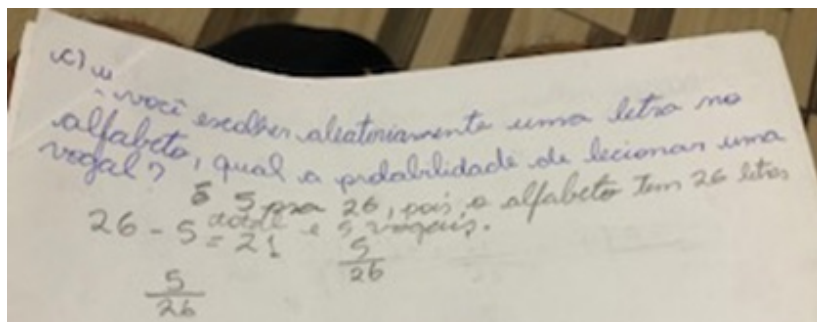 c) você escolher aleatoriamente uma letra no
alfabeto, qual a probabilidade de lecionar uma
vogal?
5 para 26, pois o alfabeto tem 26 letras
e 5 vogais.
26 - 5 = 21
5/26
5/26